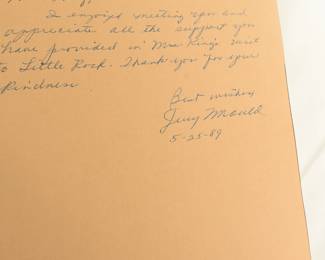 I enjoyed meeting you and
appreciate all the support you
have provided in Mrs King's visit
to Little Rock. Thank you for your
kindness
Best wishes
Jerry Mould
5-25-89